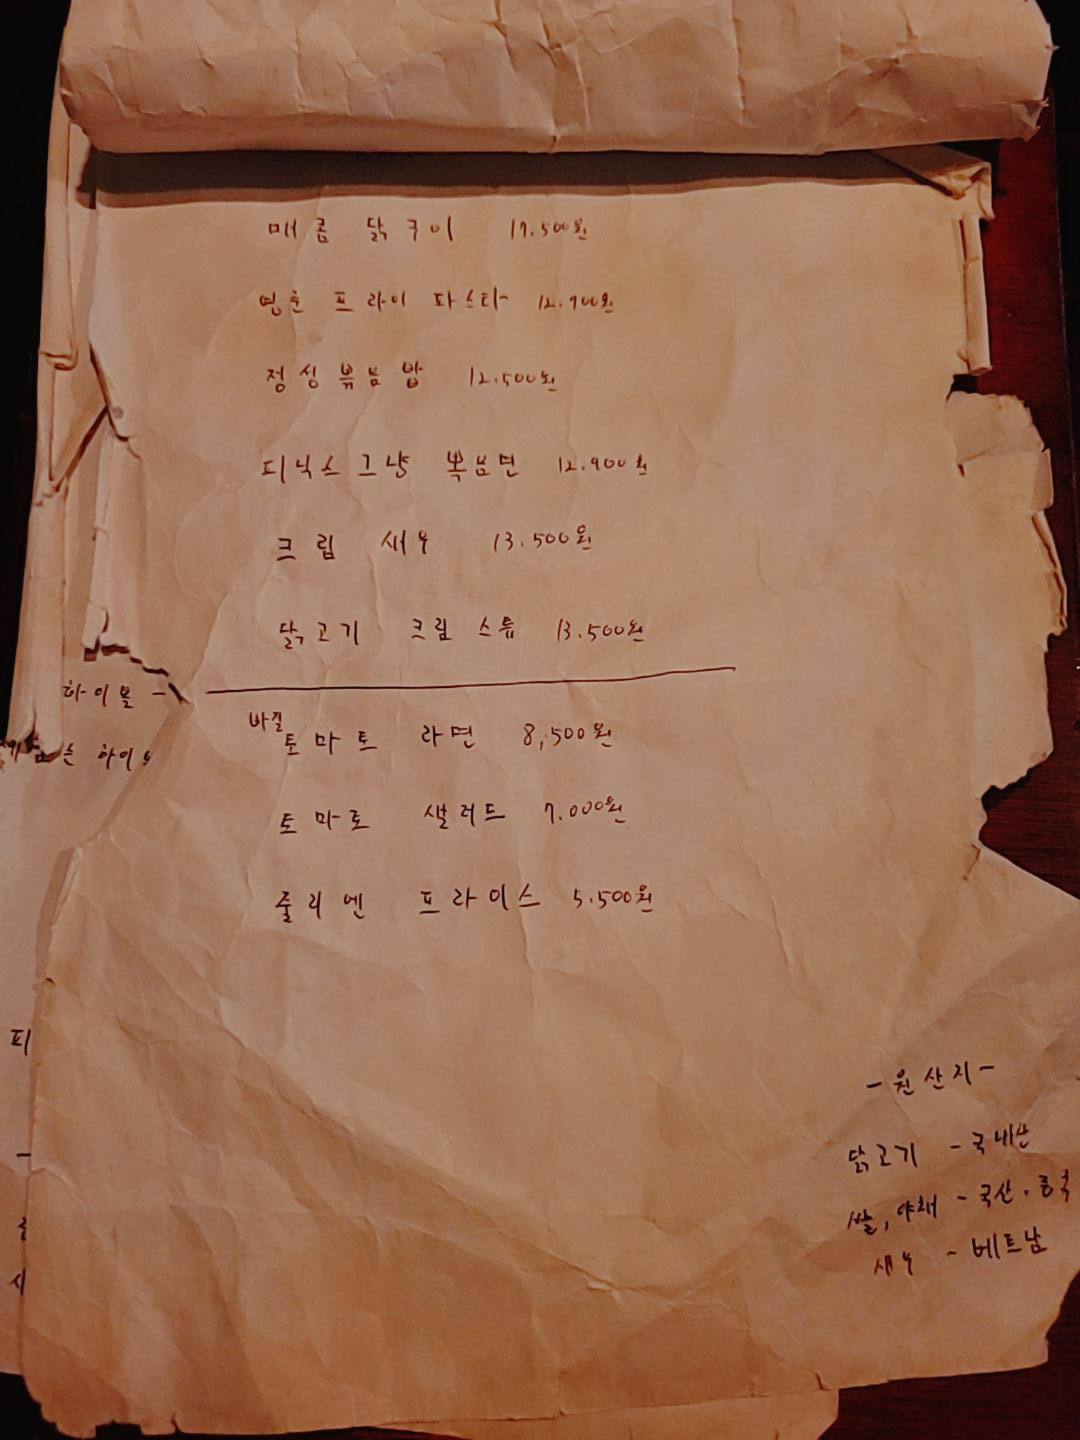 매콤 닭구이 17.500원
프라이 파스타 12.900원
정성볶음밥 12.500원
피닉스그냥 볶음면 12.900원
크림 새우 13.500원
닭고기 크림 스튜 13.500원
하이볼 -
바질
토마토 라면 8,500원
하이
토마토 샐러드 7.000원
줄리엔 프라이스 5.500원
피
- 원산지 -
닭고기 - 국내산
쌀, 야채 - 국산.중국
새우 - 베트남